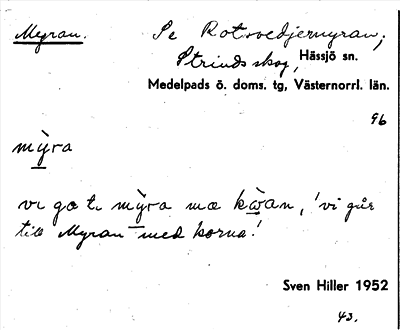 Myran. Se Rotsvedjemyran;
Strinds skog, Hässjö sn.
Medelpads ö. doms. tg, Västernorrl. län.
96
mỳra
vi go t. mỳra mæ kẁan, 'vi går
till Myran med korna!'
Sven Hiller 1952
43.